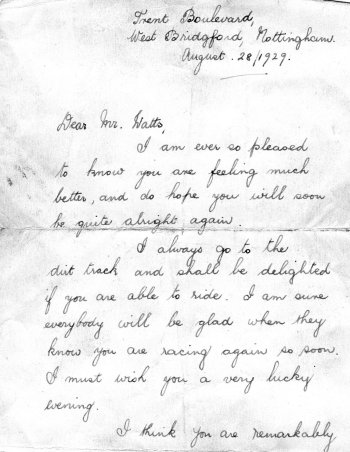 Trent Boulevard,
West Bridgford, Nottingham.
August. 28/1929.
Dear Mr. Watts,
I am ever so pleased
to know you are feeling much
better, and do hope you will soon
be quite alright again.
I always go to the
dirt track and shall be delighted
if you are able to ride. I am sure
everybody will be glad when they
know you are racing again so soon.
I must wish you a very lucky
evening.
I think you are remarkably